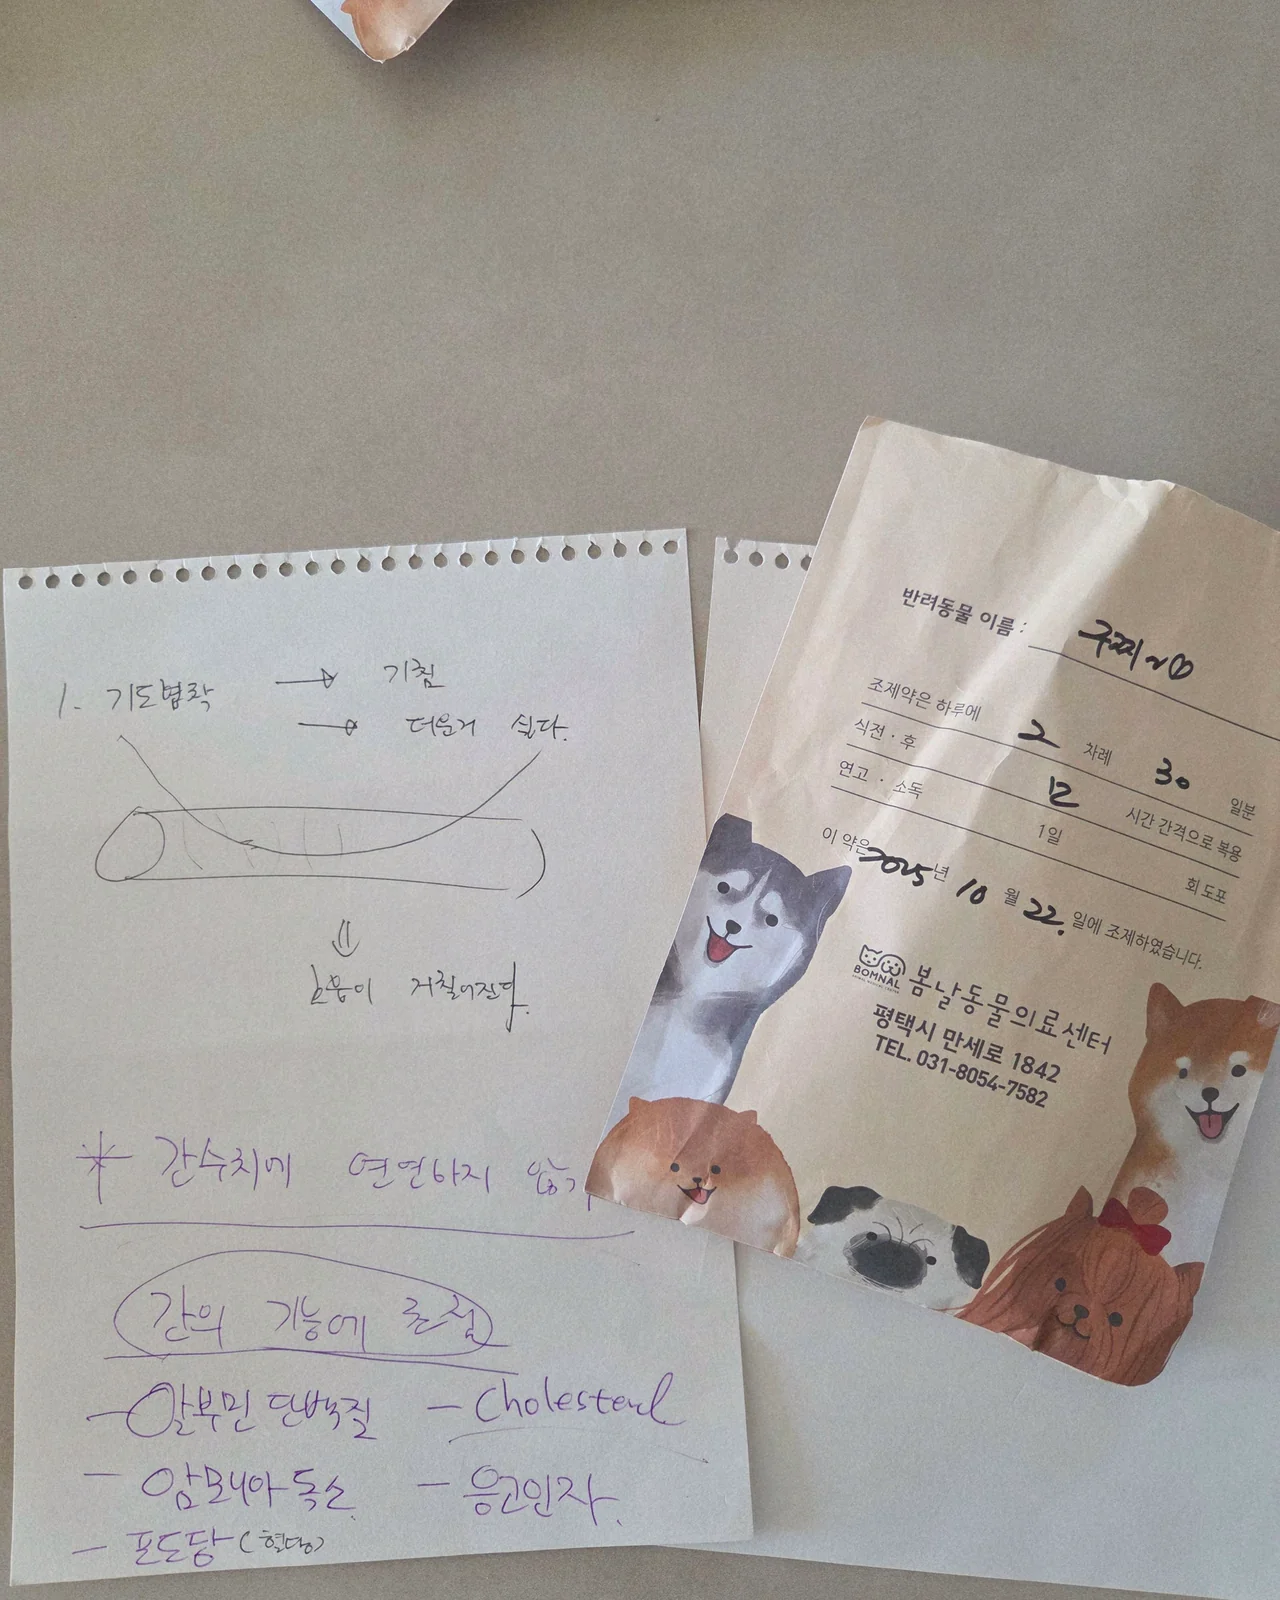 1. 기도협착 → 기침
→ 더운거 싫다.
⇓
호흡이 거칠어진다.
* 간수치에 연연하지 않기
간의 기능에 초점
- 알부민 단백질 - Cholesterol
- 암모니아 독소 - 응고인자.
- 포도당 (혈당)
반려동물 이름 : 구찌~♡
조제약은 하루에 2 차례 30 일분
식전 · 후 12 시간 간격으로 복용
연고 · 소독 1일 회 도포
이 약은 2025년 10월 22. 일에 조제하였습니다.
BOMNAL 봄날동물의료센터
평택시 만세로 1842
TEL. 031-8054-7582